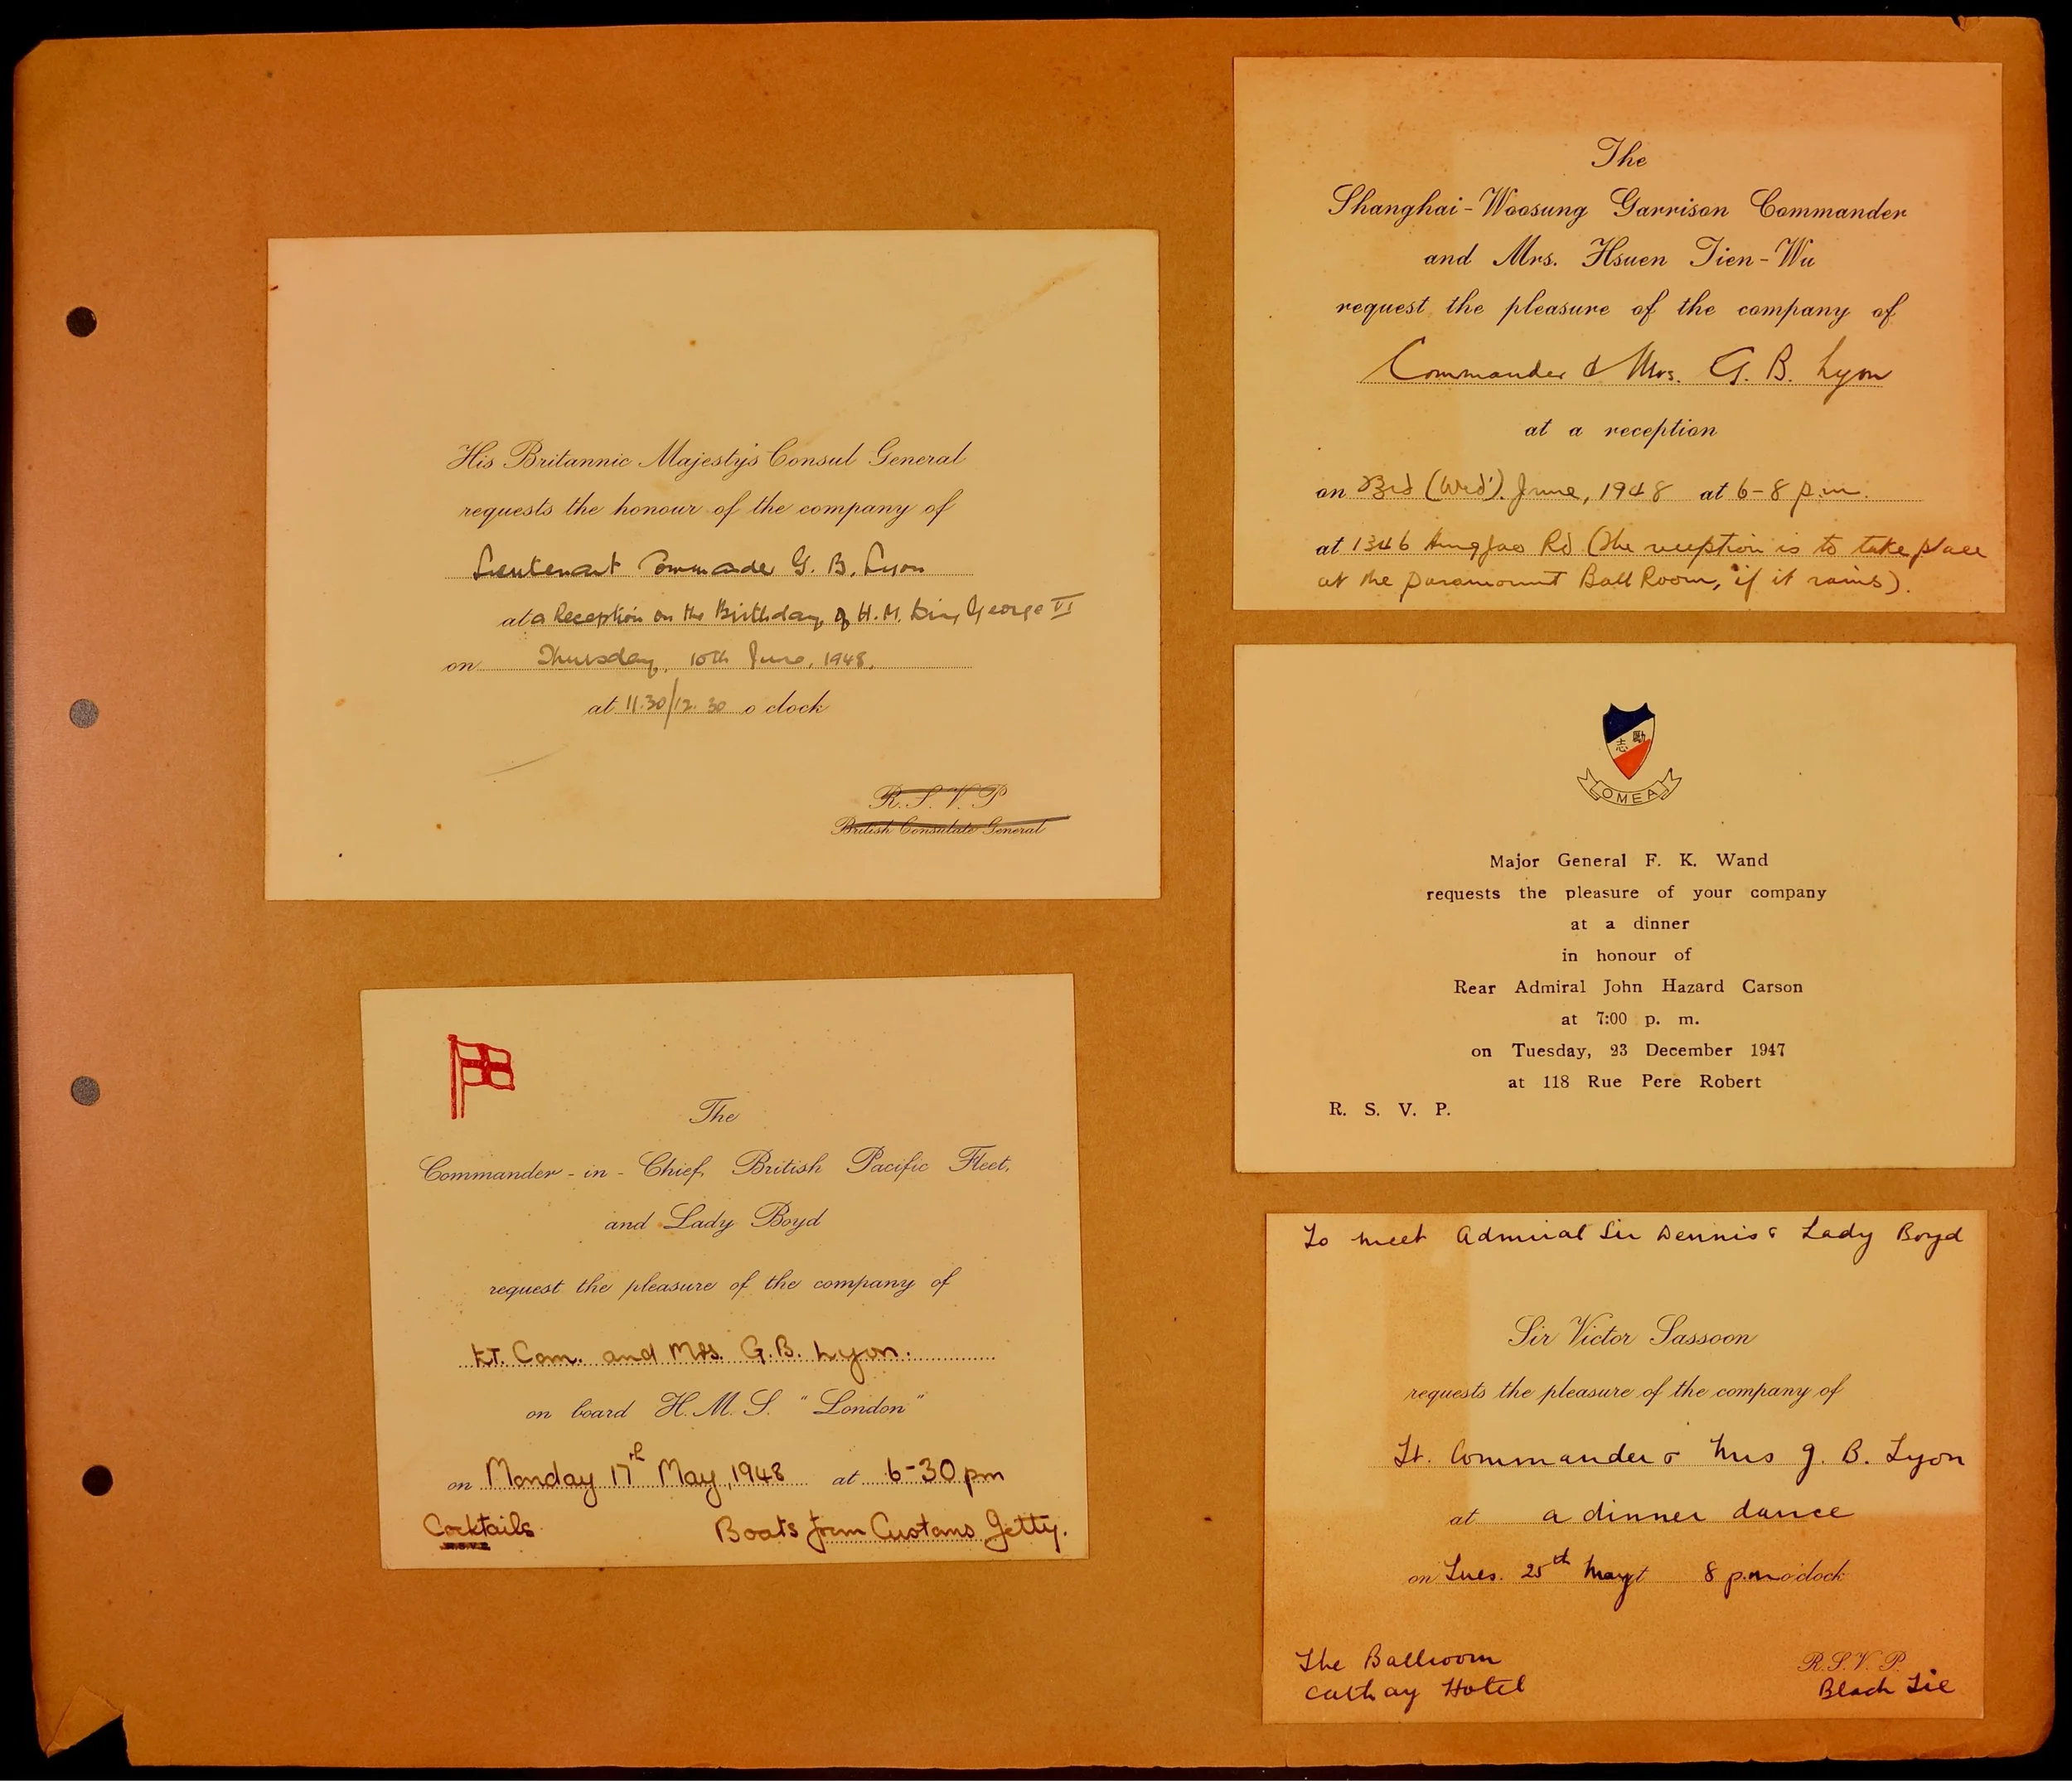 His Britannic Majesty's Consul General
requests the honour of the company of
Lieutenant Commander G. B. Lyon
at a Reception on the Birthday of H.M. King George VI
on Thursday, 10th June, 1948.
at 11.30/12.30 o'clock
R. S. V. P
British Consulate General
The
Commander - in - Chief, British Pacific Fleet,
and Lady Boyd
request the pleasure of the company of
Lt. Com. and Mrs. G.B. Lyon.
on board H. M. S. "London"
on Monday 17th May, 1948 at 6-30 pm
Cocktails Boats from Customs Jetty.
R.S.V.P.
The
Shanghai - Woosung Garrison Commander
and Mrs. Hsuen Tien - Wu
request the pleasure of the company of
Commander & Mrs. G. B. Lyon
at a reception
on 23rd (Wed). June, 1948 at 6-8 p.m.
at 1346 Hungjao Rd (The reception is to take place
at the Paramount Ball Room, if it rains).
勵
志
OMEA
Major General F. K. Wand
requests the pleasure of your company
at a dinner
in honour of
Rear Admiral John Hazard Carson
at 7:00 p. m.
on Tuesday, 23 December 1947
at 118 Rue Pere Robert
R. S. V. P.
To meet Admiral Sir Dennis & Lady Boyd
Sir Victor Sassoon
requests the pleasure of the company of
Lt. Commander & Mrs G. B. Lyon
at a dinner dance
on Tues. 25th May at 8 p.m o'clock
The Ballroom R.S.V.P.
Cathay Hotel Black Tie